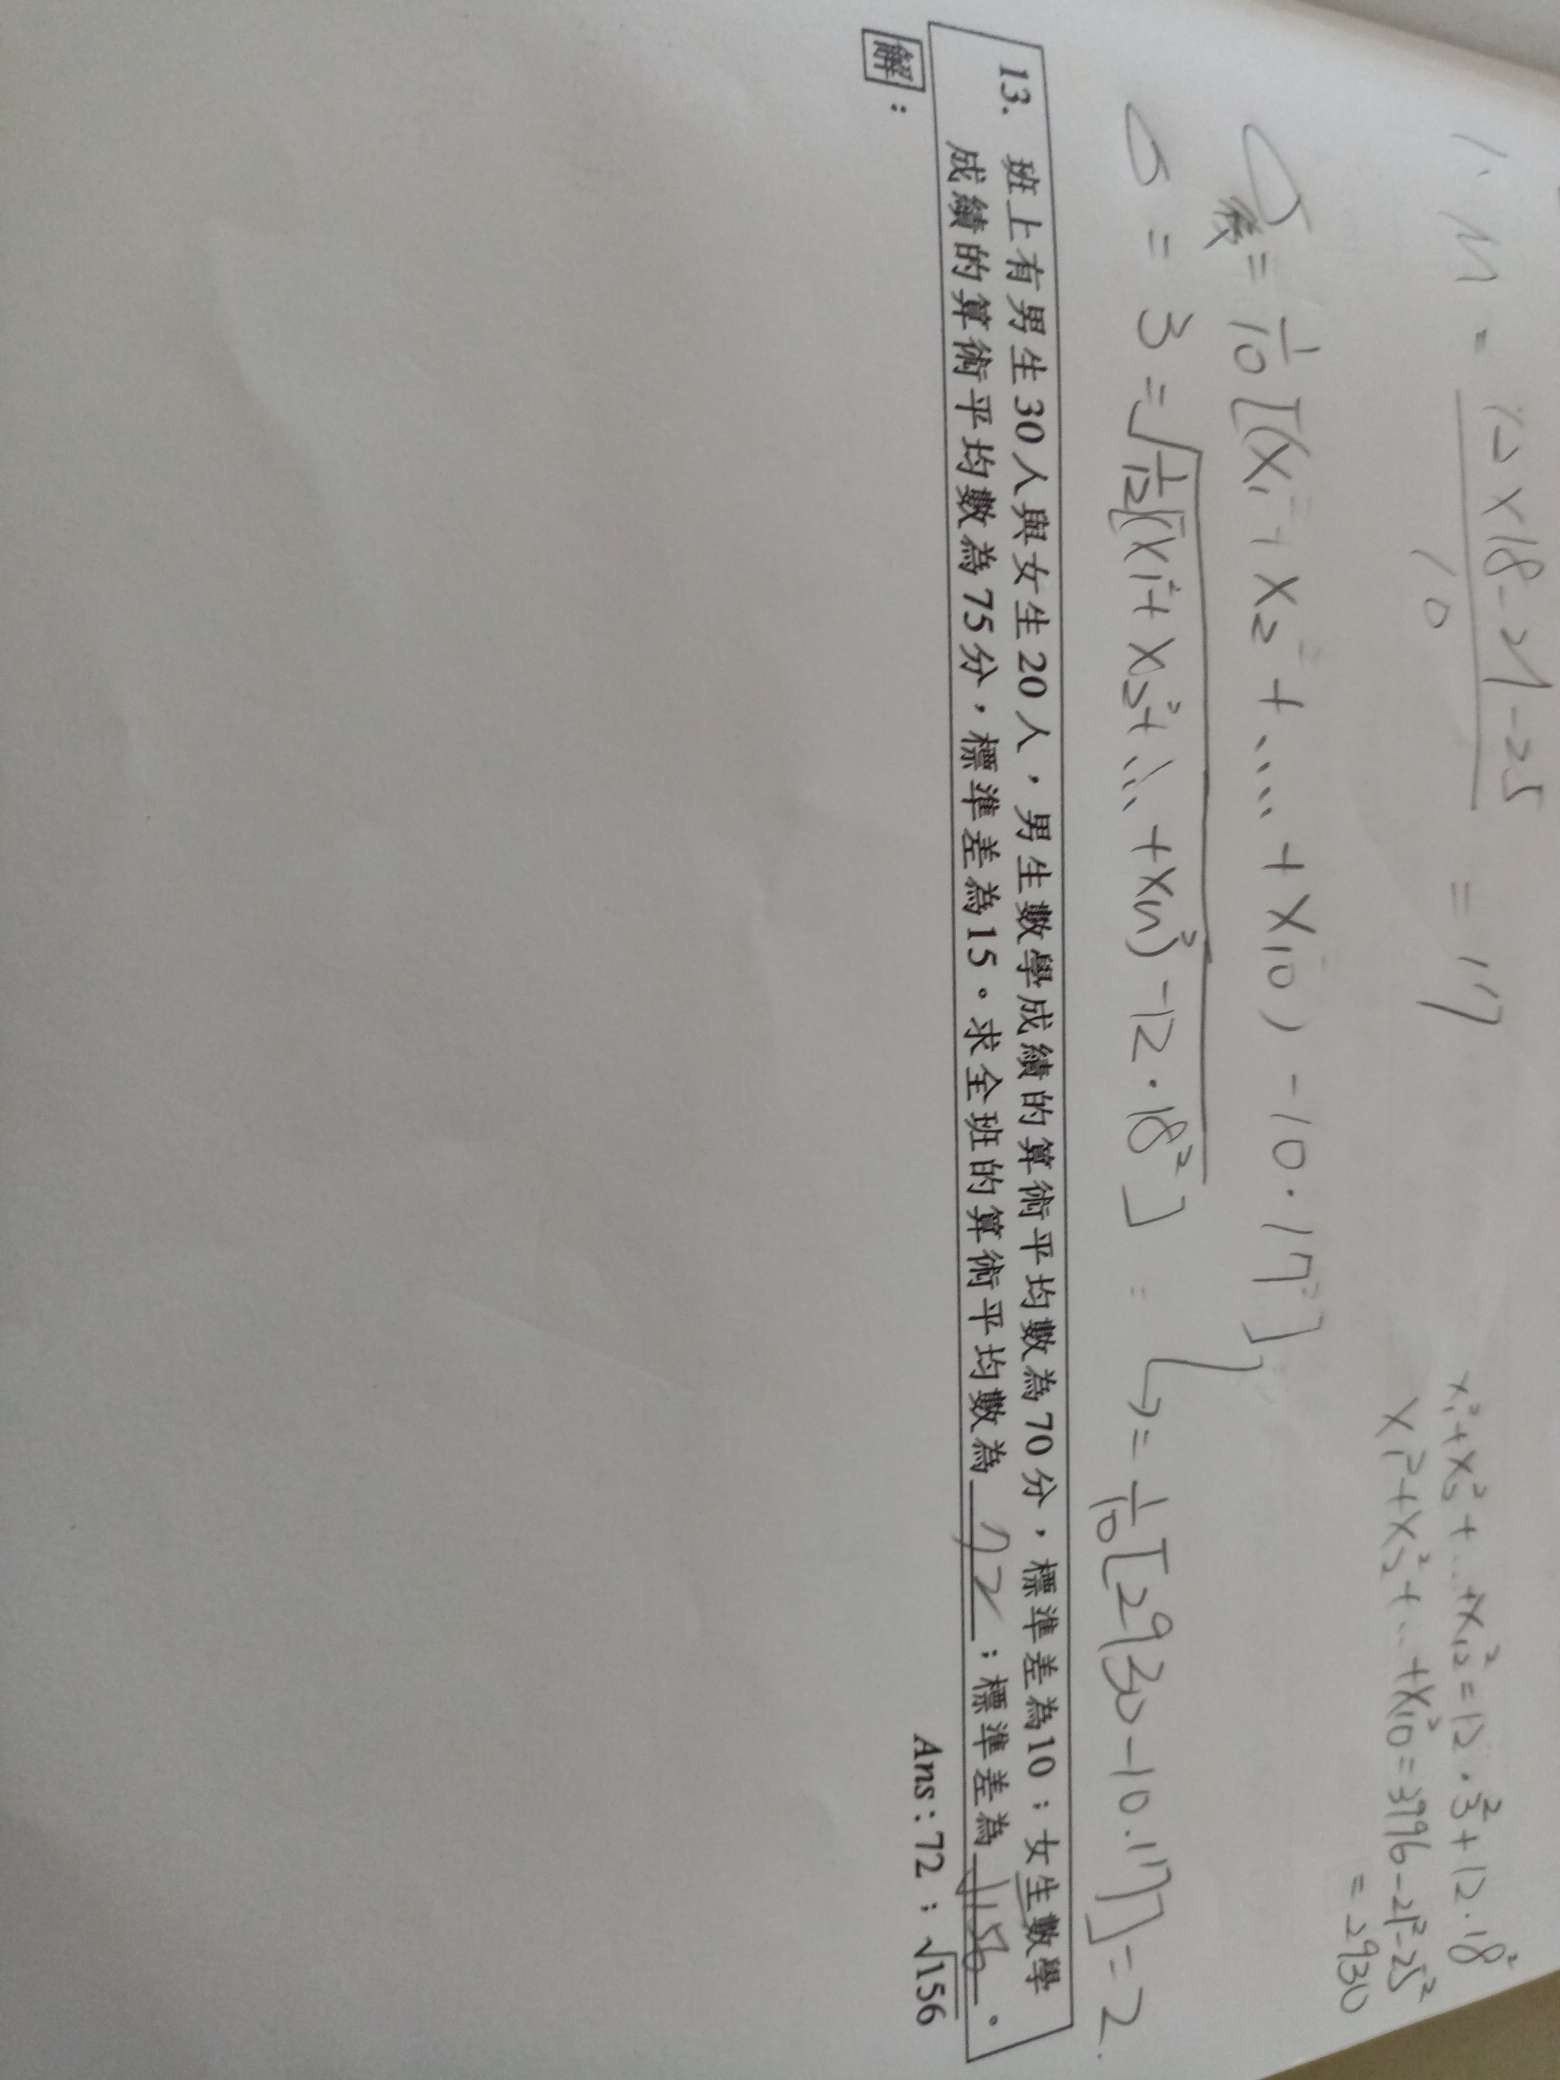 1. M = (12×18-21-25)/10 = 17
x₁²+x₂²+...+x₁₂²=12·3²+12·18²
x₁²+x₂²+...+x₁₀²=3996-21²-25²
=2930
= 1/10[(x₁²+x₂²+....+x₁₀²)-10·17²]
σ = 3 = √1/12[(x₁²+x₂²+...+xₙ²)-12·18²] = ↳ = 1/10[2930-10.17²] = 2.
13. 班上有男生30人與女生20人，男生數學成績的算術平均數為70分，標準差為10；女生數學
成績的算術平均數為75分，標準差為15。求全班的算術平均數為 72 ；標準差為 √156 。
Ans：72；√156
解：